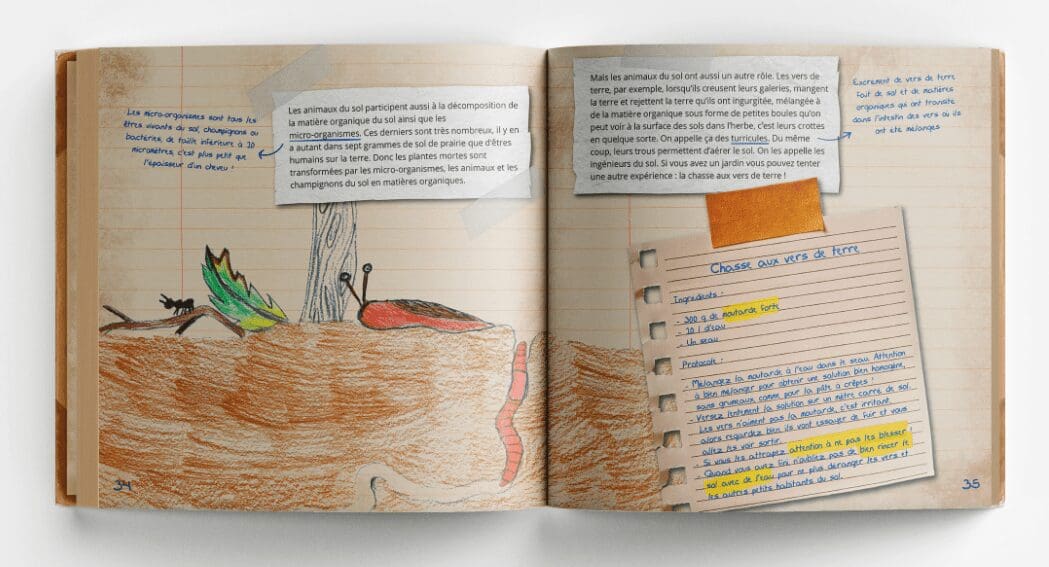 Les micro-organismes sont tous les
êtres vivants du sol, champignons ou
bactéries, de taille inférieure à 20
micromètres, c'est plus petit que
l'épaisseur d'un cheveu !
Les animaux du sol participent aussi à la décomposition de
la matière organique du sol ainsi que les
micro-organismes. Ces derniers sont très nombreux, il y en
a autant dans sept grammes de sol de prairie que d'êtres
humains sur la terre. Donc les plantes mortes sont
transformées par les micro-organismes, les animaux et les
champignons du sol en matières organiques.
34
Mais les animaux du sol ont aussi un autre rôle. Les vers de
terre, par exemple, lorsqu'ils creusent leurs galeries, mangent
la terre et rejettent la terre qu'ils ont ingurgitée, mélangée à
de la matière organique sous forme de petites boules qu'on
peut voir à la surface des sols dans l'herbe, c'est leurs crottes
en quelque sorte. On appelle ça des turricules. Du même
coup, leurs trous permettent d'aérer le sol. On les appelle les
ingénieurs du sol. Si vous avez un jardin vous pouvez tenter
une autre expérience : la chasse aux vers de terre !
Excrement de vers de terre
fait de sol et de matières
organiques qui ont transité
dans l'intestin des vers ou ils
ont été mélangés
Chasse aux vers de terre
Ingrédients :
- 300 g de moutarde forte
- 10 l d'eau
- Un seau
Protocole :
- Mélangez la moutarde à l'eau dans le seau. Attention
à bien mélanger pour obtenir une solution bien homogène,
sans grumeaux comme pour la pâte à crêpes !
- Versez lentement la solution sur un mètre carré de sol.
Les vers n'aiment pas la moutarde, c'est irritant.
alors regardez bien ils vont essayer de fuir et vous
allez les voir sortir.
- Si vous les attrapez attention à ne pas les blesser !
- Quand vous avez fini n'oubliez pas de bien rincer le
sol avec de l'eau pour ne plus déranger les vers et
les autres petits habitants du sol.
35